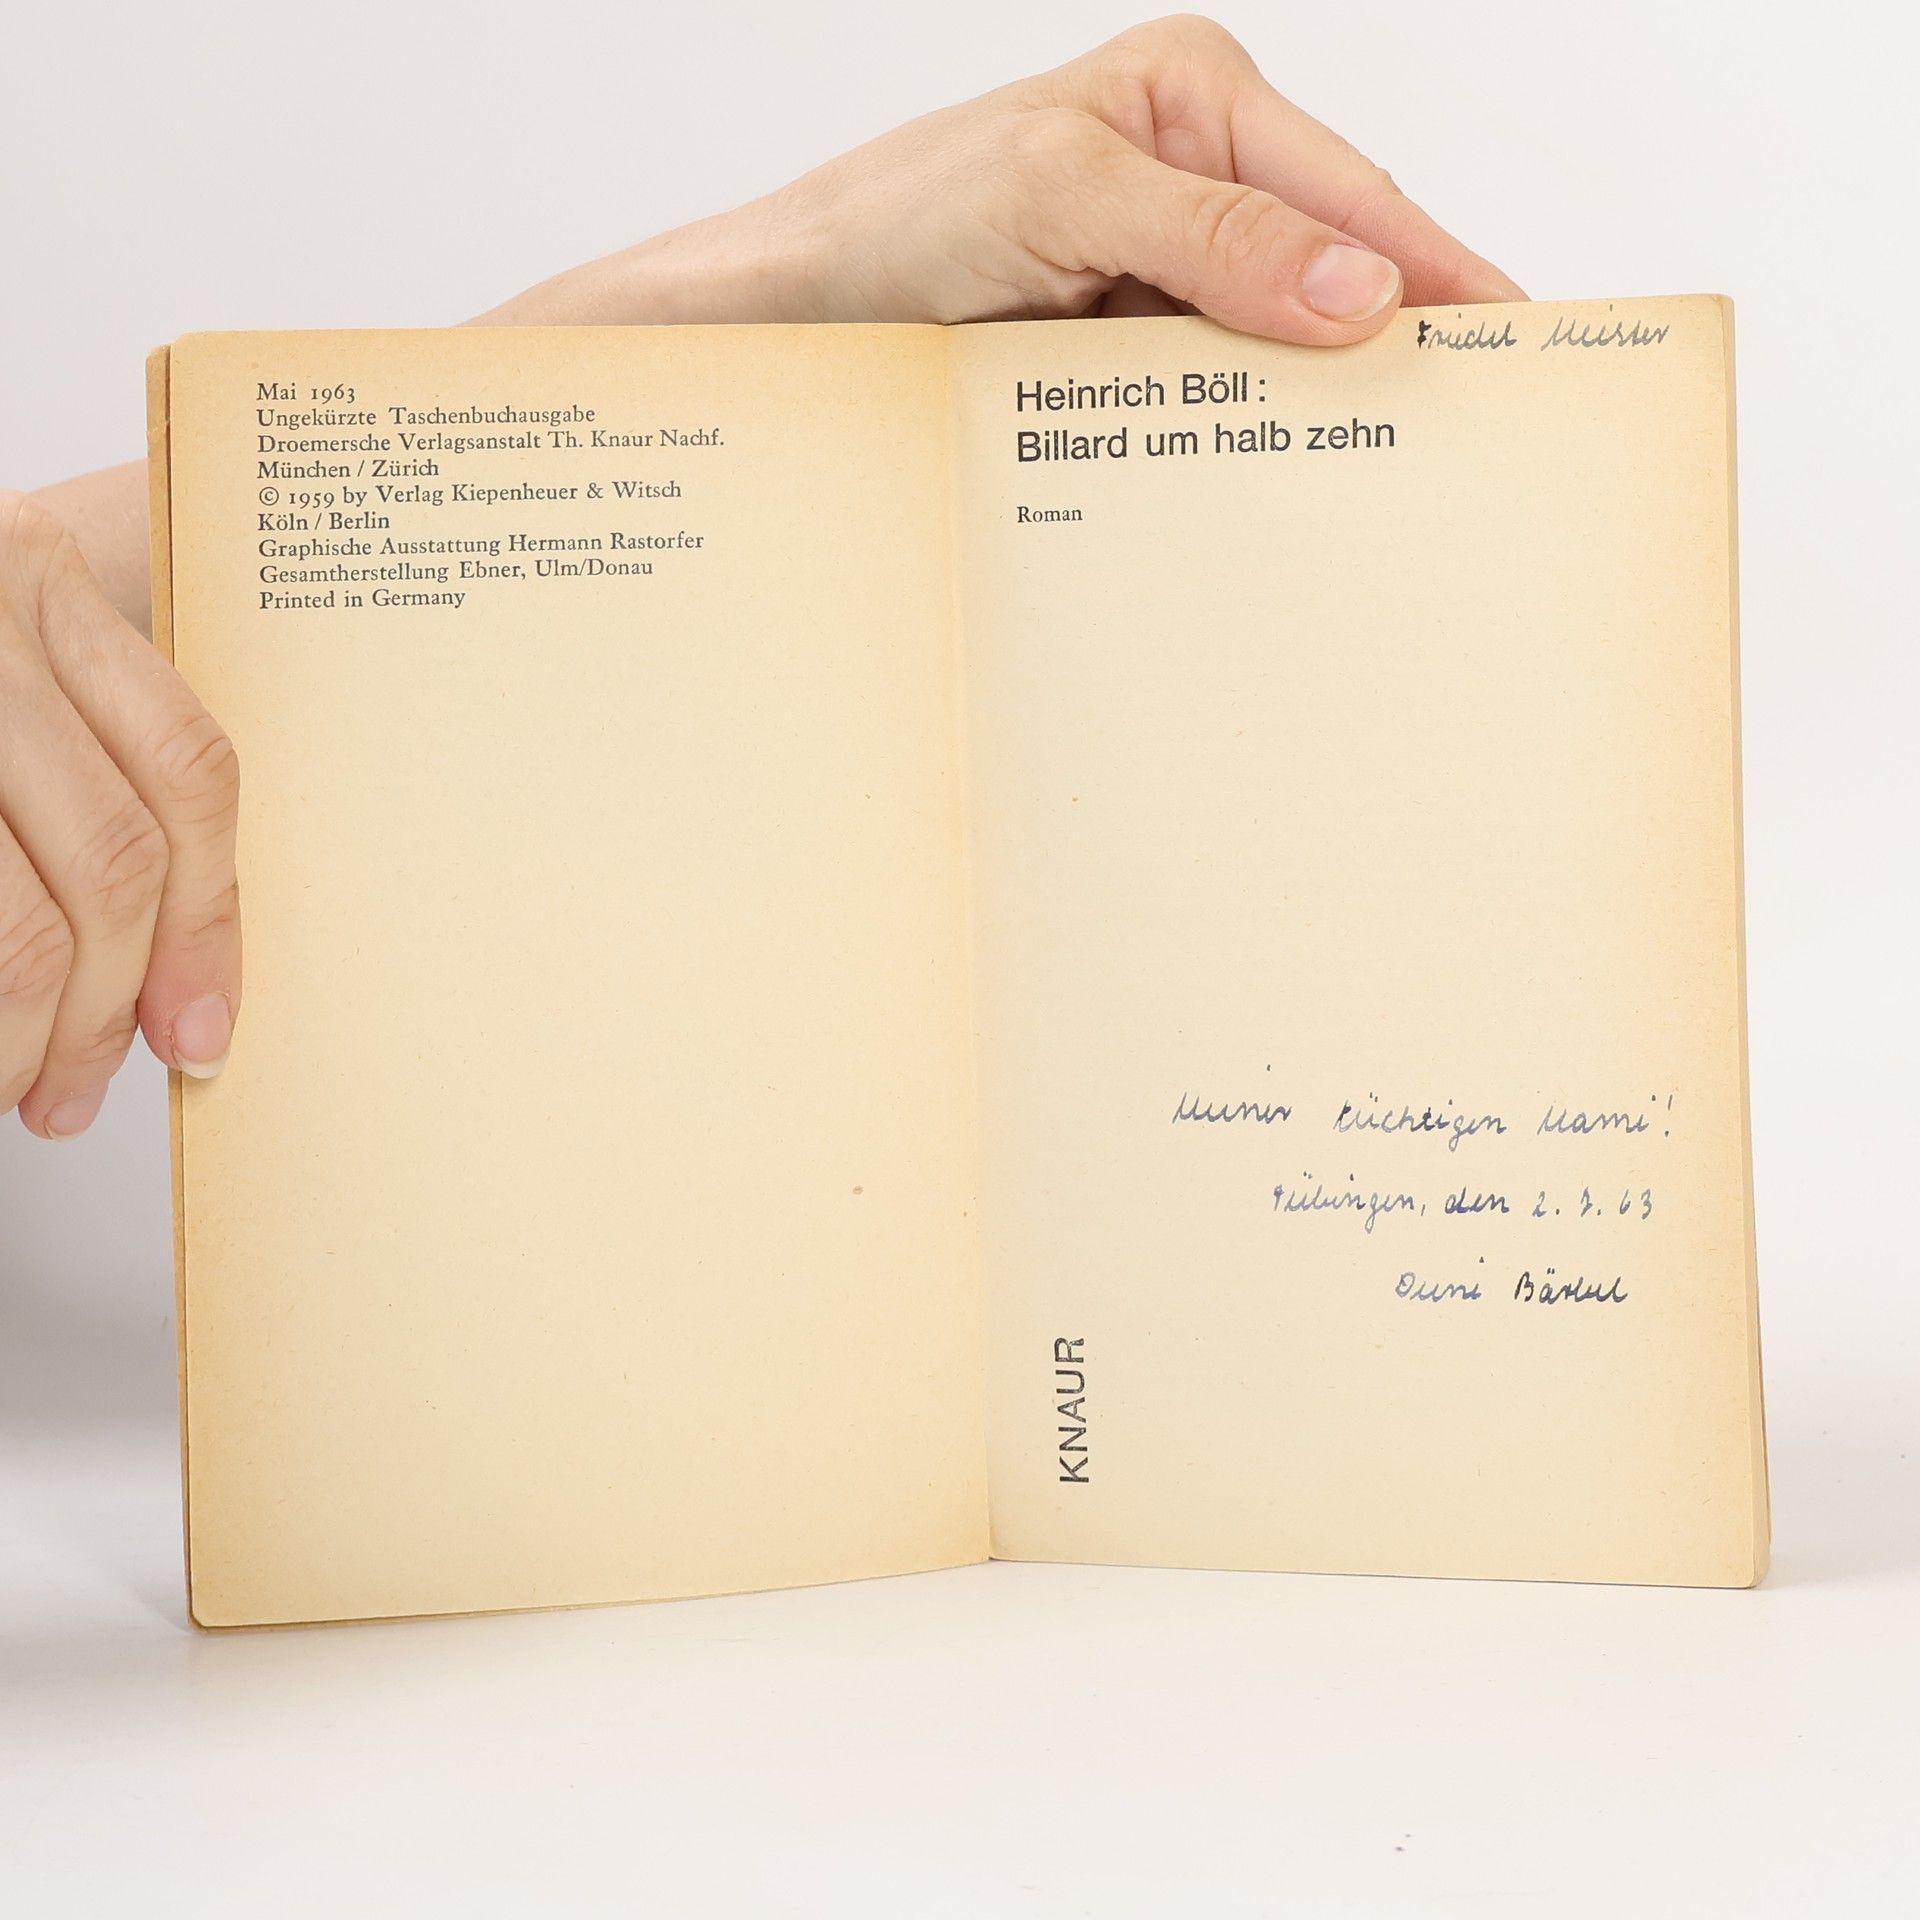 Mai 1963
Ungekürzte Taschenbuchausgabe
Droemersche Verlagsanstalt Th. Knaur Nachf.
München / Zürich
© 1959 by Verlag Kiepenheuer & Witsch
Köln / Berlin
Graphische Ausstattung Hermann Rastorfer
Gesamtherstellung Ebner, Ulm/Donau
Printed in Germany
Friedel Meister
Heinrich Böll:
Billard um halb zehn
Roman
Meiner tüchtigen Mami!
Tübingen, den 2. 7. 63
Deine Bärbel
KNAUR